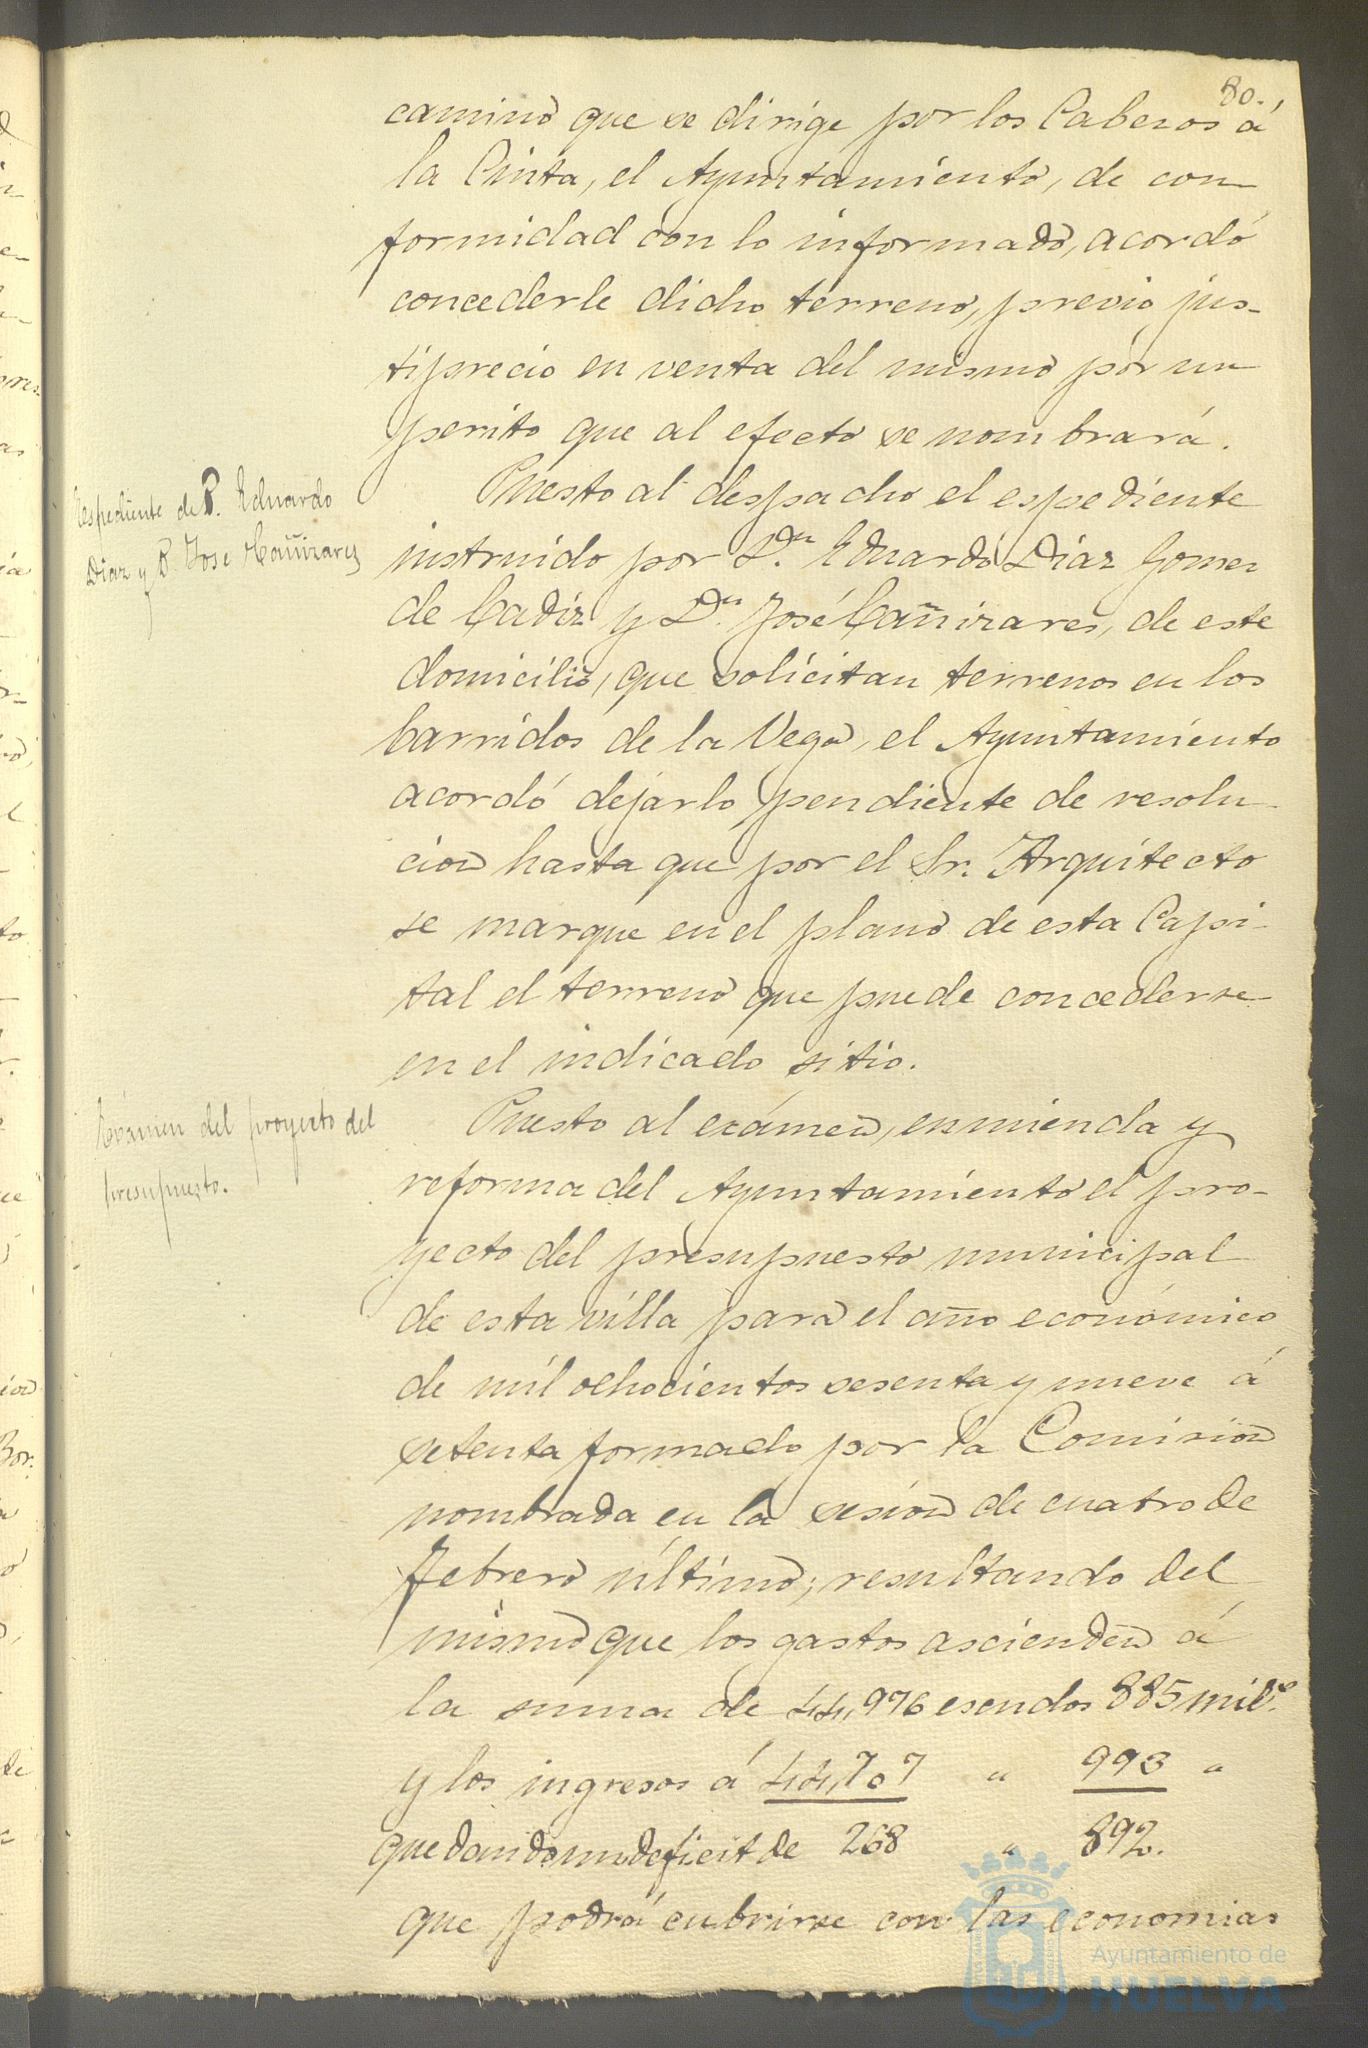 80.
camino que se dirige por los Cabezos á
la Cinta, el Ayuntamiento, de con-
formidad con lo informado, acordó
concederle dicho terreno, previo jus-
tiprecio en venta del mismo por un
perito que al efecto se nombrará.
Espediente de D. Eduardo
Diaz y D. Jose Cañizares
Puesto al despacho el espediente
instruido por Dn. Eduardo Diaz Gomez
de Cadiz y Dn. José Cañizares, de este
domicilio, que solicitan terrenos en los
barridos de la Vega, el Ayuntamiento
acordó dejarlo pendiente de resolu-
cion hasta que por el Sr. Arquitecto
se marque en el plano de esta Capi-
tal el terreno que puede concederse
en el indicado sitio.
Exámen del proyecto del
presupuesto.
Puesto al exámen, enmienda y
reforma del Ayuntamiento el pro-
yecto del presupuesto municipal
de esta villa para el año económico
de mil ochocientos sesenta y nueve á
setenta formado por la Comision
nombrada en la sesion de cuatro de
Febrero último; resultando del
mismo que los gastos ascienden á
la suma de 44,976 escudos 885 mils.
y los ingresos á 44,707 " 993 "
quedando un deficit de 268 " 892.
que podrá cubrirse con las economias
Ayuntamiento de
HUELVA